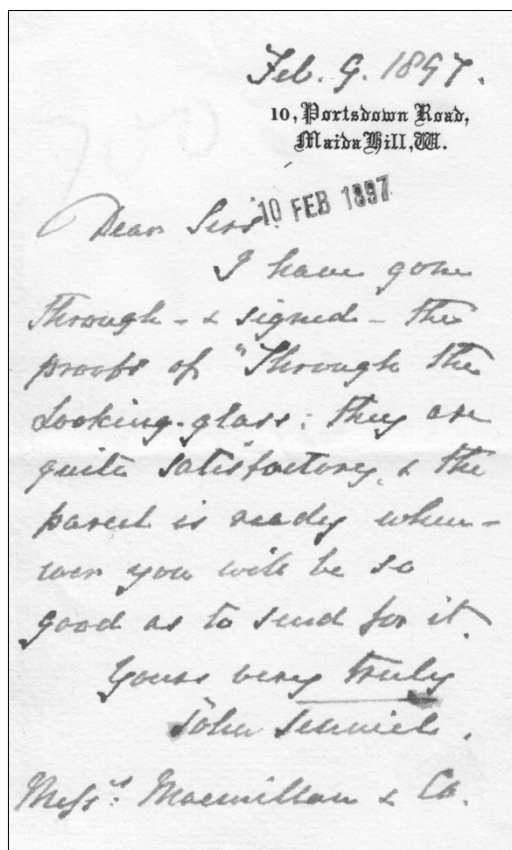 Feb. 9. 1897.
10, Portsdown Road,
Maida Hill, W.
10 FEB 1897
Dear Sirs
I have gone
through - & signed - the
proofs of "Through the
Looking-glass; they are
quite satisfactory, & the
parcel is ready when-
ever you will be so
good as to send for it.
Yours very truly
John Tenniel.
Messrs. Macmillan & Co.